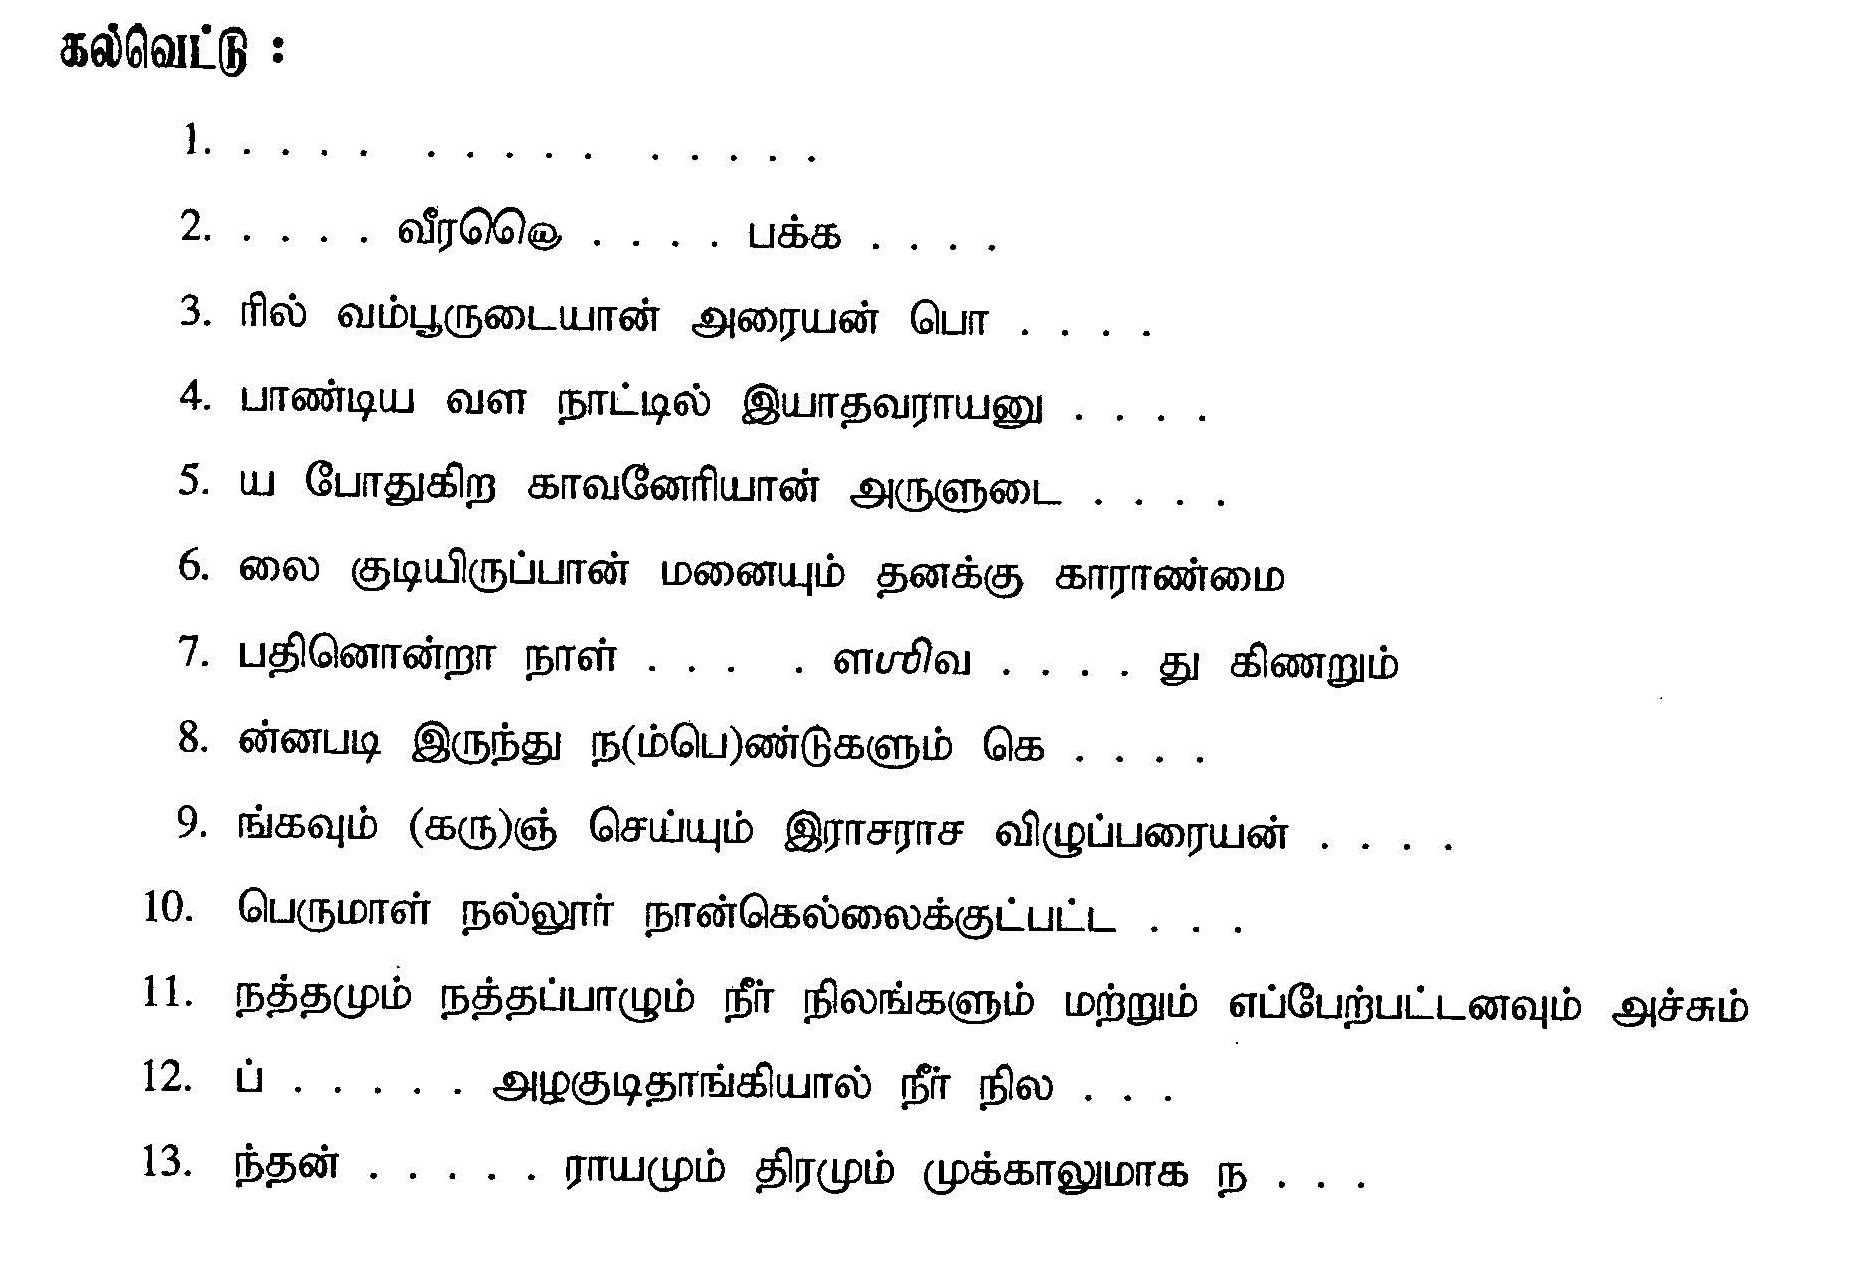 கல்வெட்டு :
1. . . . . . . . . . . . . . .
2. . . . . . . . . . பக்க . . . .
3. ரில் வம்பூருடையான் அரையன் பொ . . . .
4. பாண்டிய வள நாட்டில் இயாதவராயனு . . . .
5. ய போதுகிற காவனேரியான் அருளுடை . . . .
6. லை குடியிருப்பான் மனையும் தனக்கு காராண்மை
7. பதினொன்றா நாள் . . . . . . . . து கிணறும்
8. ன்னபடி இருந்து ந(ம்பெ)ண்டுகளும் கெ . . . .
9. ங்கவும் (கரு)ஞ் செய்யும் இராசராச விழுப்பரையன் . . . .
10. பெருமாள் நல்லூர் நான்கெல்லைக்குட்பட்ட . . .
11. நத்தமும் நத்தப்பாழும் நீர் நிலங்களும் மற்றும் எப்பேற்பட்டனவும் அச்சும்
12. ப் . . . . . அழகுடிதாங்கியால் நீர் நில . . .
13. ந்தன் . . . . . ராயமும் திரமும் முக்காலுமாக ந . . .